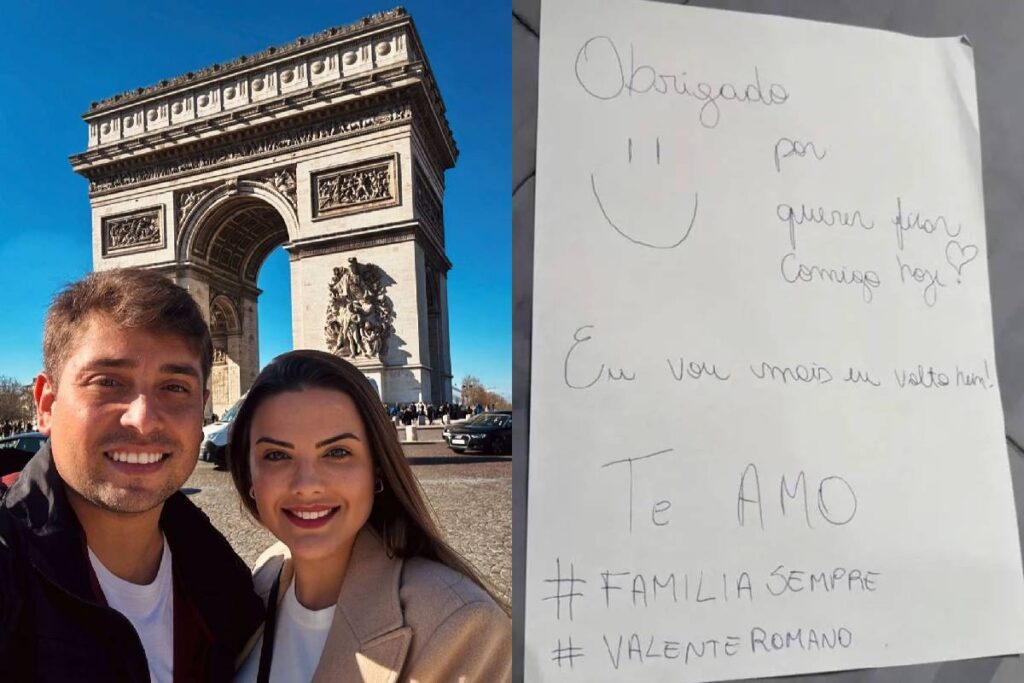 Obrigado
por
querer ficar
comigo hoje!
Eu vou mais eu volto hem!
Te AMO
#FAMILIA SEMPRE
#VALENTE ROMANO